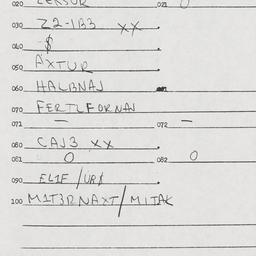 020 021 0
030 Z2-1B3 XX
040 -$
050 AXTUR
060 HALBNAJ
070 FERTLFORNAJ
071 — 072 —
080 CAJ3 XX
081 0 082 0
090 ELIF/UR$
100 M1T3RNAXT/MITAK